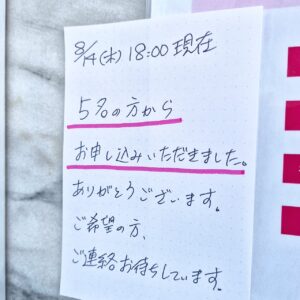 8/14(木) 18:00 現在
5名の方から
お申し込みいただきました。
ありがとうございます。
ご希望の方、
ご連絡お待ちしています。